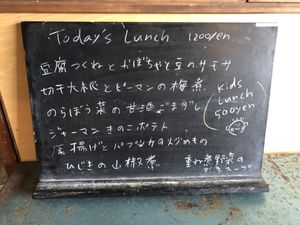 Today's Lunch 1200yen
豆腐つくねとかぼちゃと豆のサモサ
切干大根とピーマンの梅煮
のらぼう菜の甘酒ごまだし
ジャーマンきのこポテト
厚揚げとパプリカの炒めもの
ひじきの山椒煮
重ね煮野菜の
スープ
Kids
Lunch
500yen